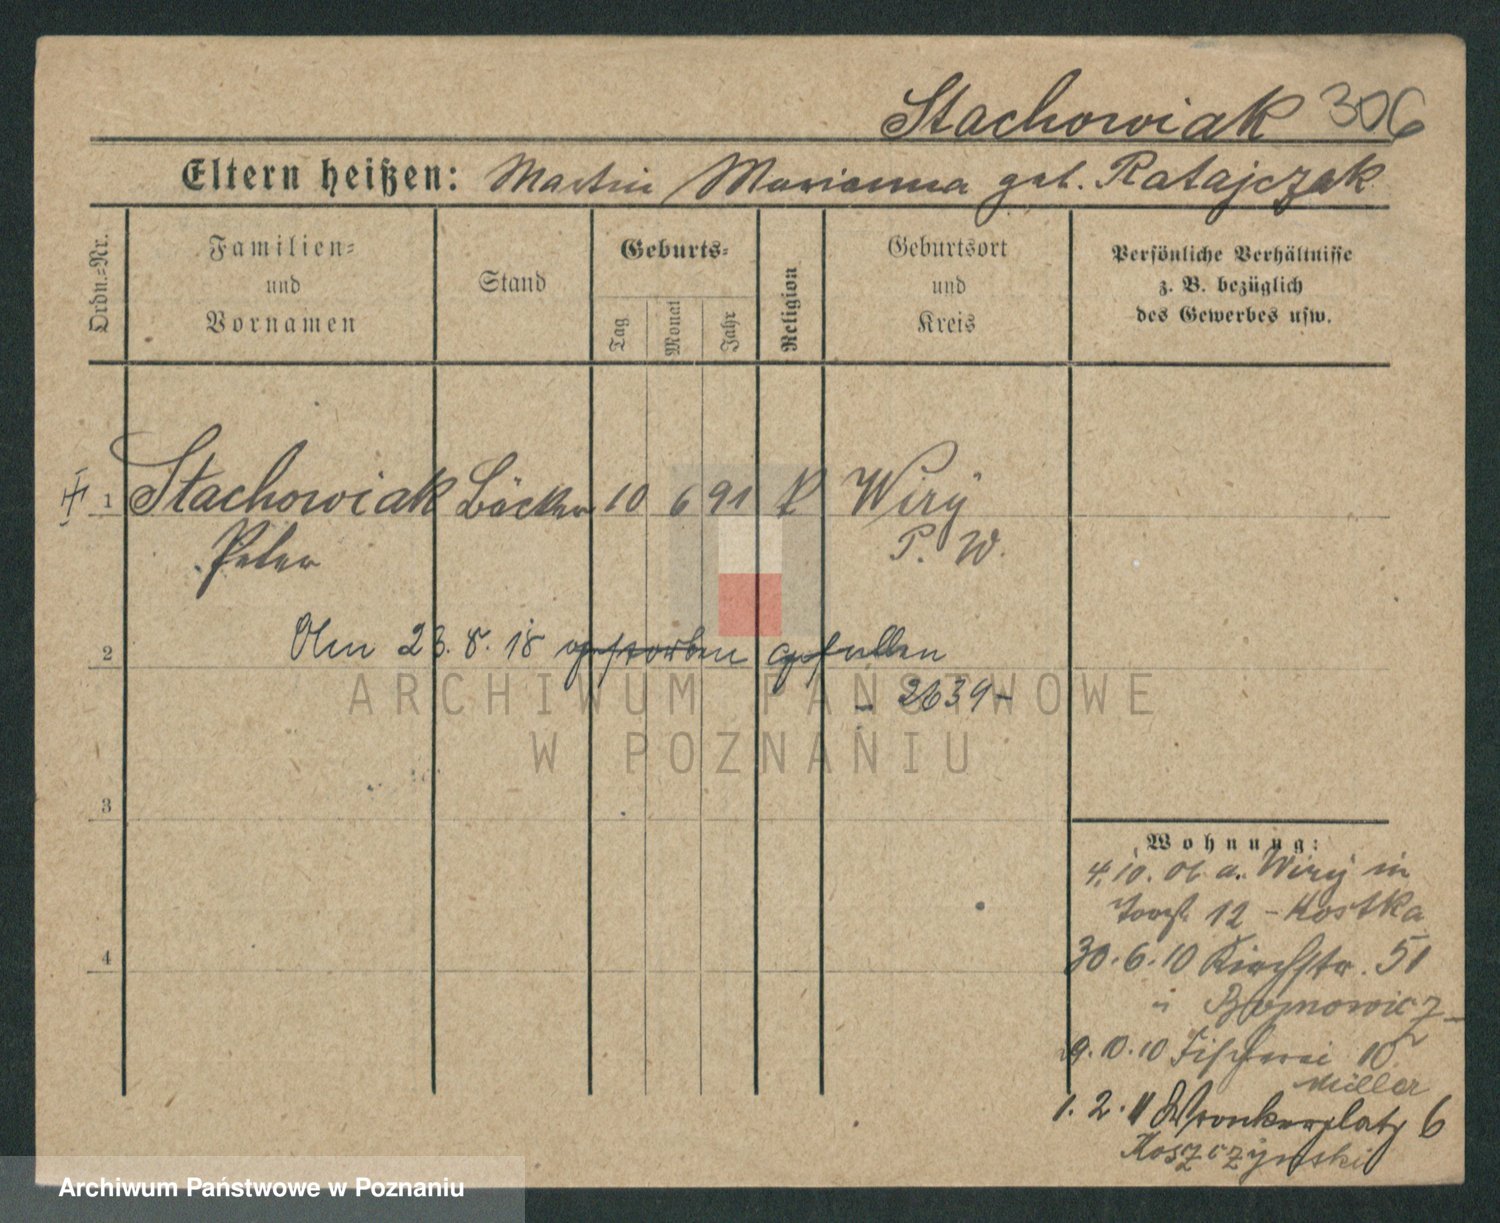 Stachowiak 306
Eltern heißen: Martin Marianna geb. Ratajczak
Ordn.=Nr.
Familien=
und
Vornamen
Stand
Geburts=
Tag
Monat
Jahr
Religion
Geburtsort
und
Kreis
Persönliche Verhältnisse
z. B. bezüglich
des Gewerbes usw.
1 Stachowiak Bäcker 10 6 91 k Wiry
Peter P. W.
2 Am 23. 8. 18 gestorben gefallen
– 2639 –
ARCHIWUM PAŃSTWOWE
W POZNANIU
3
4
Wohnung:
4. 10. 06 a. Wiry in
12 – Kostka
30. 6. 10 Kirchstr. 51
9. 10. 10 Fischerei 10
Müller
1. 2. 11 Wronkerplatz 6
Koszczynski
Archiwum Państwowe w Poznaniu